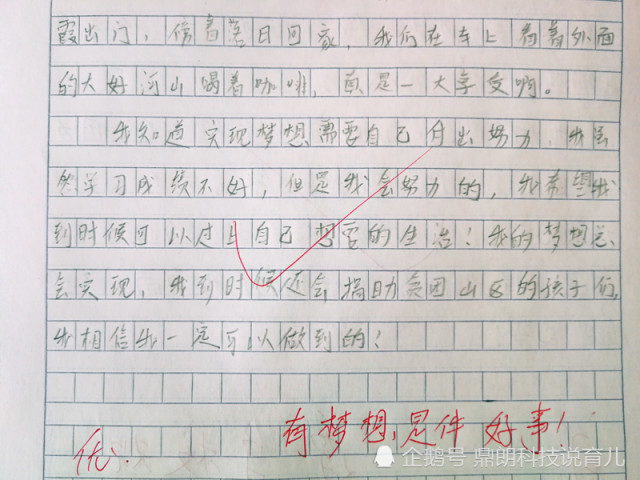 霞出门，伴着落日回家，我们在车上看着外面
的大好河山喝着咖啡，真是一大享受啊。
我知道实现梦想需要自己付出努力，我虽
然学习成绩不好，但是我会努力的，我希望我
到时候可以过上自己想要的生活！我的梦想总
会实现，我到时候还会捐助贫困山区的孩子们，
我相信我一定可以做到的！
有梦想，是件好事！
优.
企鹅号 鼎朗科技说育儿